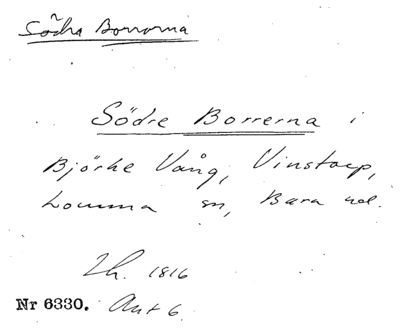 Södra Borrorna
Södre Borrerna i
Bjärke Vång, Vinstorp,
Lomma sn, Bara hd.
Lh. 1816
Nr 6330. Akt 6